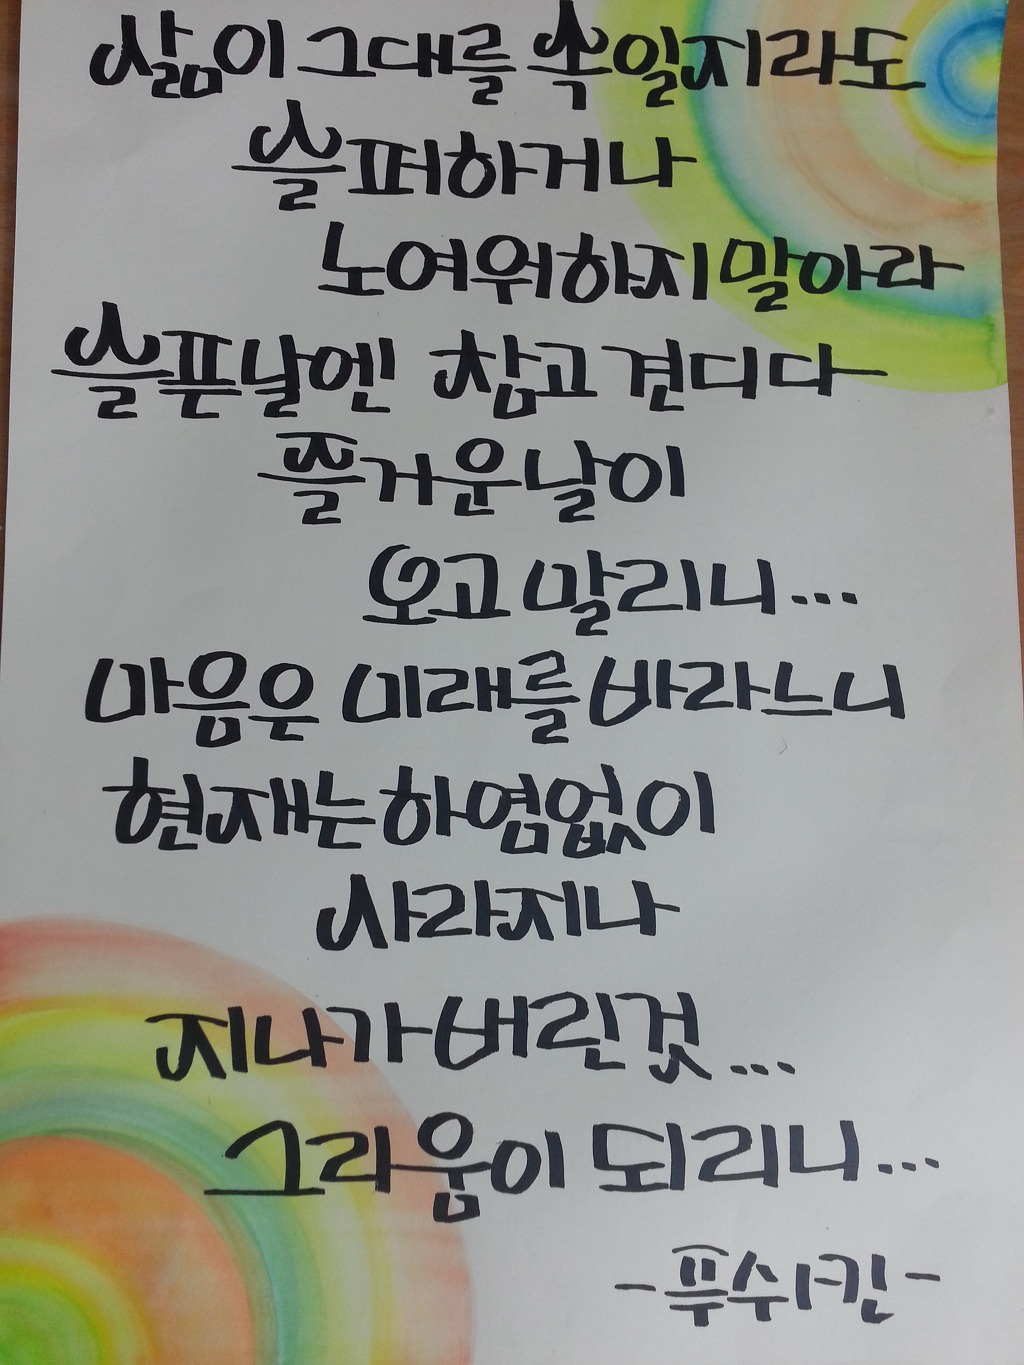 삶이 그대를 속일지라도
슬퍼하거나
노여워하지 말아라
슬픈날엔 참고 견디다
즐거운날이
오고 말리니...
마음은 미래를 바라느니
현재는 하염없이
사라지나
지나가 버린것...
그라움이 되리니...
-푸수시킨-